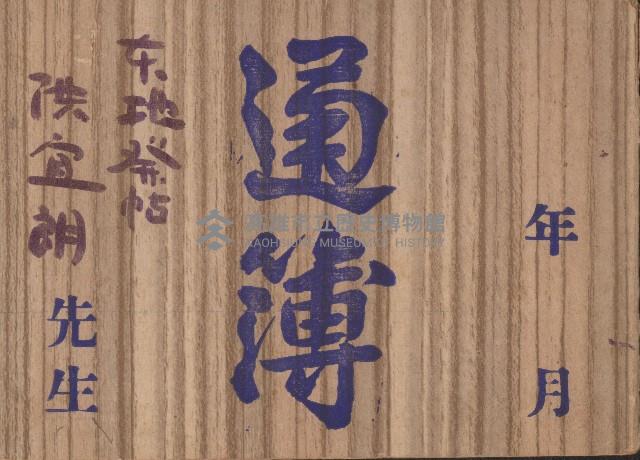 年 月
通簿
東地發帖
洪宜朗 先生
高雄市立歷史博物館
KAOHSIUNG MUSEUM OF HISTORY